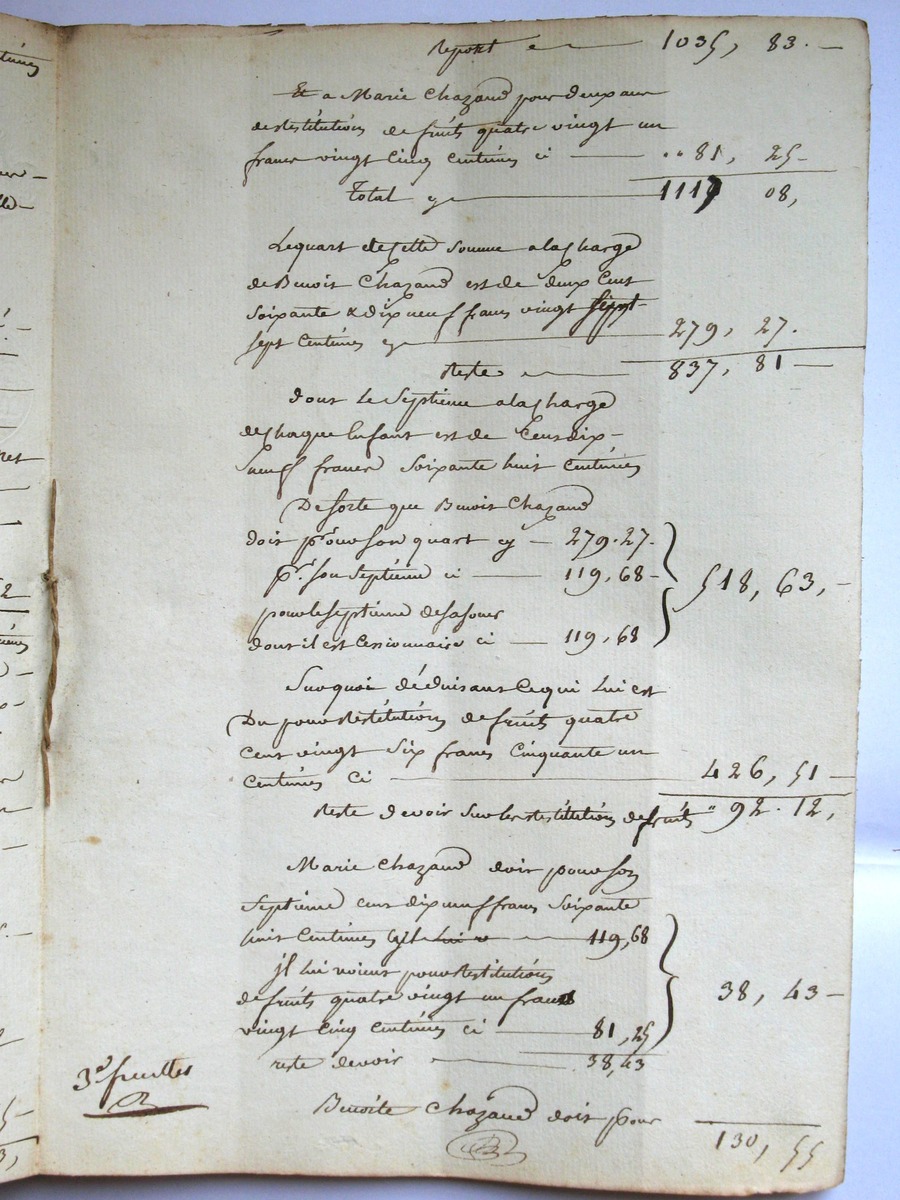 Report cy 1035, 83.
Et a Marie Chazaud pour deux ans
de restitutions de fruits quatre vingt un
francs vingt cinq centimes ci 81, 25
Total cy 1117 08,
Le quart de cette somme a la charge
de Benoit Chazaud est de deux cent
soixante & dix neuf francs vingt sept
sept centimes cy 279, 27.
Reste 837, 81
dont le septième a la charge
de chaque Enfant est de Cent dix-
neuf francs soixante huit centimes
De sorte que Benoit Chazaud
doit pr. pour son quart cy 279.27.
pr. son septième ci 119,68 518, 63,
pour le septième de sa soeur
dont il est cessionnaire ci 119,68
Sur quoi déduisant ce qui lui est
Du pour restitutions de fruits quatre
cent vingt six francs cinquante un
centimes ci 426, 51
Reste devoir sur les restitutions de fruits 92.12,
Marie Chazaud doit pour son
septième cent dix neuf francs soixante
huit centimes 119,68
jl lui revient pour restitutions
de fruits quatre vingt un francs 38, 43
vingt cinq centimes ci 81,25
reste devoir 38,43
3e feuillet
Benoite Chazaud doit pour
130, 55